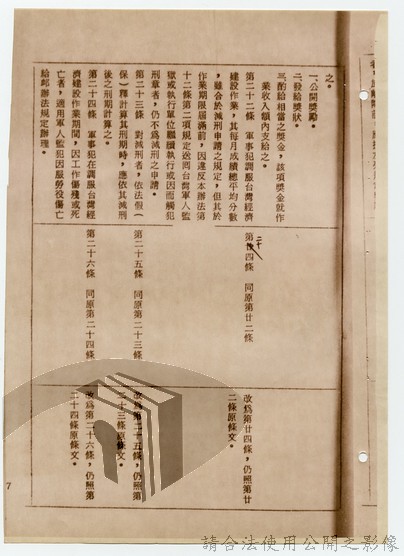 之。
一、公開獎勵。
二、發給獎狀。
三、酌給相當之獎金，該項獎金就作
業收入額內支給之。
第二十二條 軍事犯調服台灣經濟
建設作業，其每月成績總平均分數
，雖合於減刑申請之規定，但其於
作業期限屆滿前，因違反本辦法第
十二條第二項規定送回台灣軍人監
獄或執行單位繼續執行或因而觸犯
刑章者，仍不為減刑之申請。
第二十三條 對減刑者，依法假（
保）釋計算其刑期時，應依其減刑
後之刑期計算之。
第二十四條 軍事犯在調服台灣經
濟建設作業期間，因工作傷殘或死
亡者，適用軍人監犯因服勞役傷亡
給卹辦法規定辦理。
第二十四條 同原第廿二條
第二十五條 同原第二十三條
第二十六條 同原第二十四條
改為第廿四條，仍照第廿
二條原條文。
改為第二十五條，仍照第
二十三條原條文。
改為第二十六條，仍照第
二十四條原條文。
7
請合法使用公開之影像